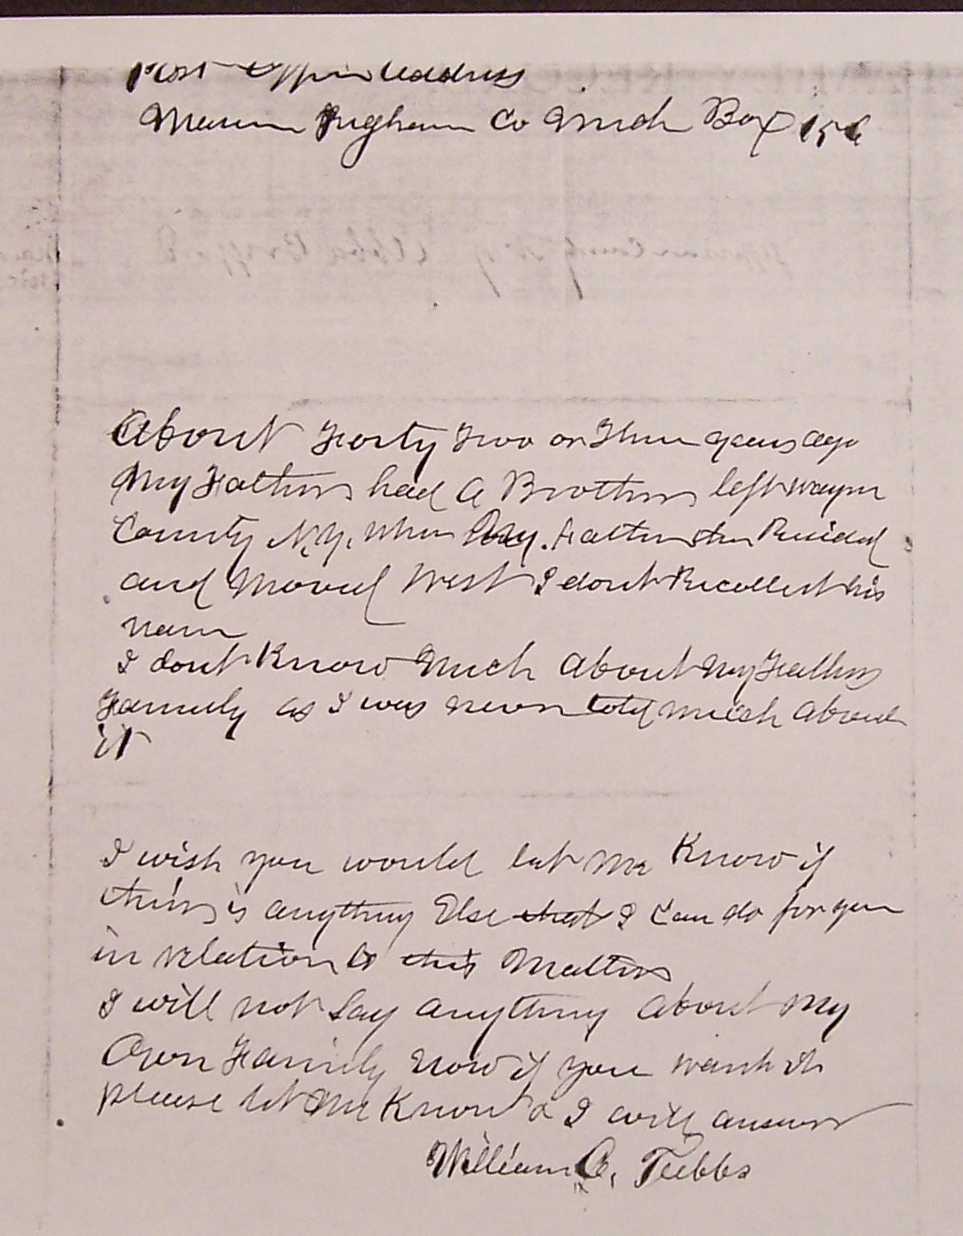 Post Office Address
Mason Ingham Co Mich Box 156
About Forty Two or Three years ago
My Father had A Brother left Wayne
County N.Y. when My Father then Resided
and Moved West I dont Recollect his
name
I dont Know Much About My Fathers
Family as I was never told much about
it
I wish you would let Me Know if
there is anything Else that I Can do for you
in relation to this Matter
I will not Say anything About My
Own Family Now if you want it
please let Me Know & I will answer
William C. Tubbs